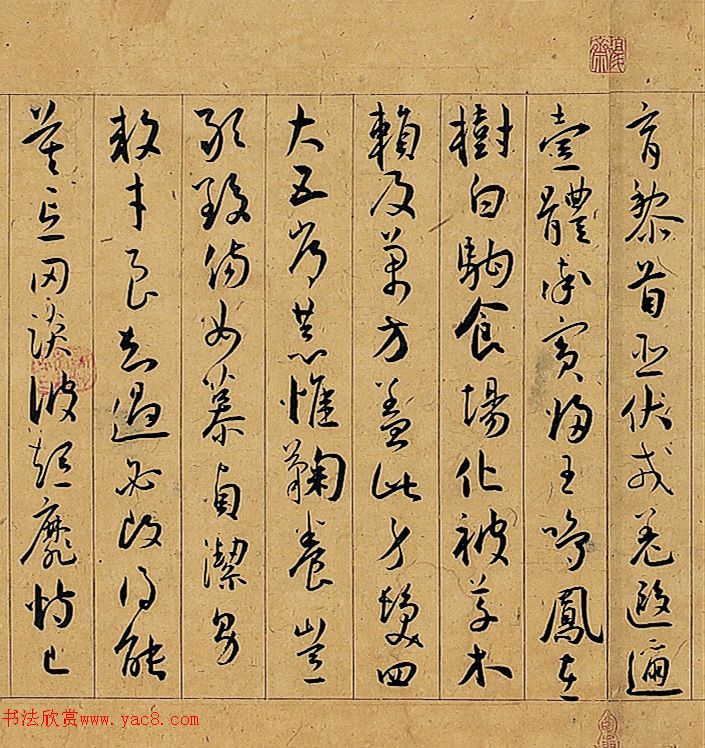 育黎首臣伏戎羌遐邇
壹體率賓歸王鳴鳳在
樹白駒食場化被草木
賴及萬方蓋此身髮四
大五常恭惟鞠養豈
敢毀傷女慕貞潔男
效才良知過必改得能
莫忘罔談彼短靡恃己
书法欣赏www.yac8.com